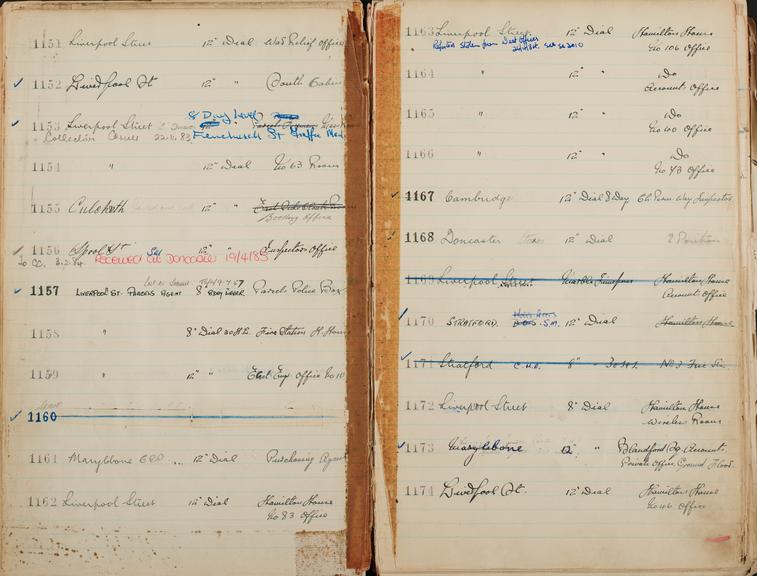 1151 Liverpool Street 12" Dial War Relief Office
1152 Liverpool St 12" " South Cabin
8 Day Lever
1153 Liverpool Street
Collection Carries 22.11.83 Fenchurch St Traffic Man
1154 " 12" Dial No 63 Room
1155 Culcketh 12" "
Booking Office
1156 12" " Inspectors Office
To CO. 3.2.84. RECEIVED at DONCASTER 19/4/85
1157 LIVERPOOL ST. PARCELS AGENT 8" 8DAY LEVER Parcels Police Box
1158 " 8" Dial 30 H.L. Fire Station H House
1159 " 12" " Elect Eng Office No 10
1160
1161 Marylebone GEO ... 12" Dial Purchasing Agent
1162 Liverpool Street 12" Dial Hamilton House
No 83 Office
1163 Liverpool Street 12" Dial Hamilton House
Reported stolen from Dist Offices No 106 Office
1164 " 12" " Do
Account Office
1165 " 12" " Do
No 40 Office
1166 " 12" " Do
No 43 Office
1167 Cambridge 12" Dial 8 Day Perm Way Inspector
1168 Doncaster 12" Dial ? Position
1169 Liverpool Street Marble Timepiece Hamilton House
Account Office
1170 STRATFORD. D.O.S. S.M. 12" Dial Hamilton House
1171 Stratford 8" " 30 H.L. No 3
1172 Liverpool Street 8" Dial Hamilton House
Wireless Room
1173 Marylebone 12" " Blandford Sq. Accounts
Private Office, Ground Floor.
1174 Liverpool St. 12" Dial Hamilton House
No 46 Office